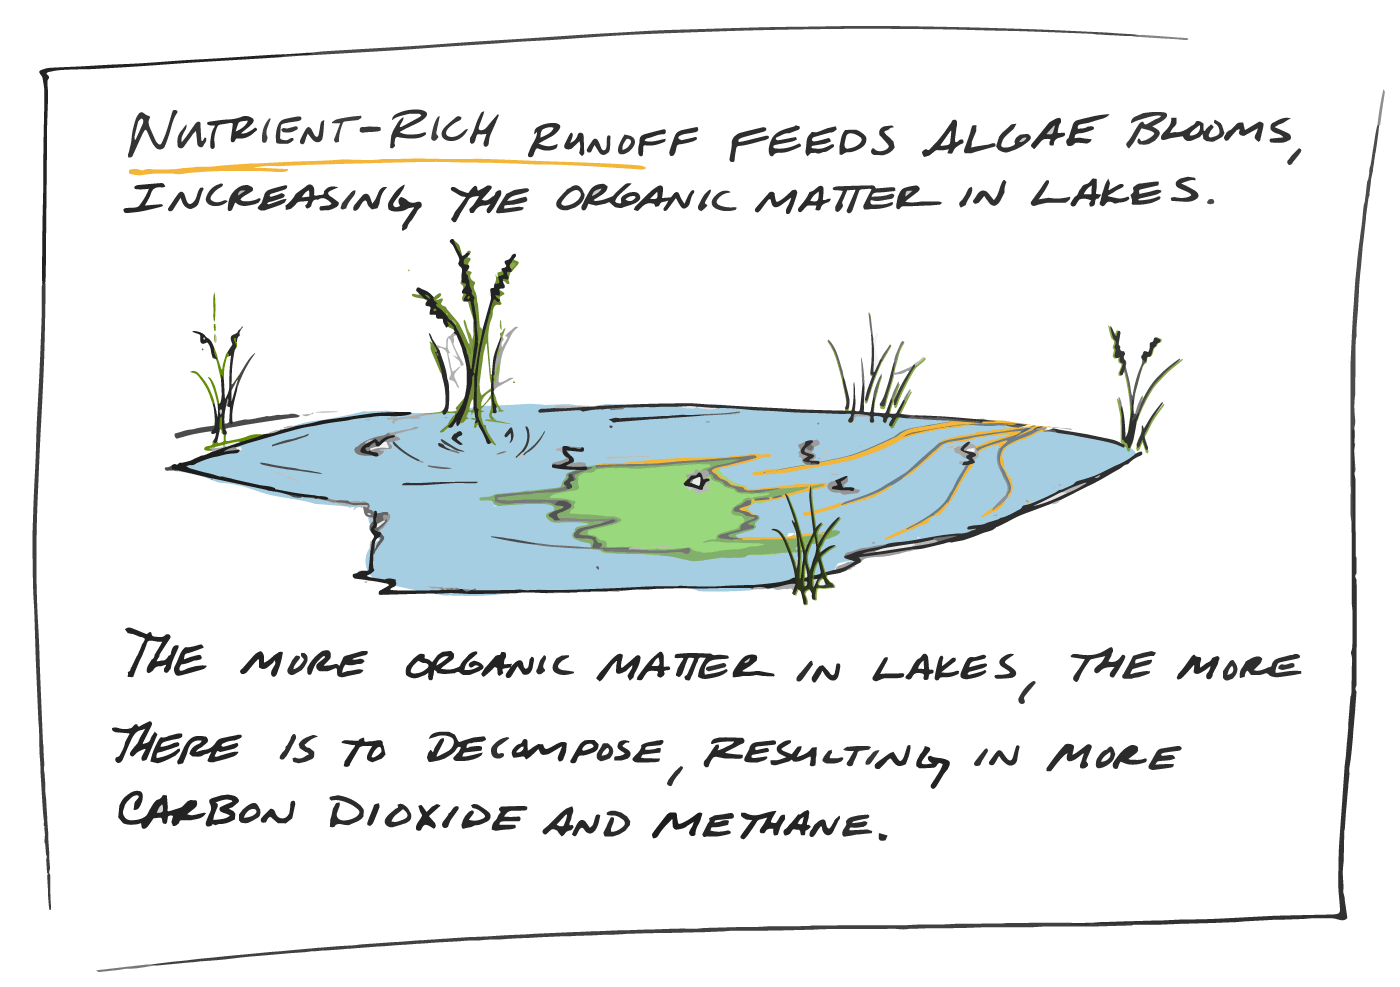 NUTRIENT-RICH RUNOFF FEEDS ALGAE BLOOMS,
INCREASING THE ORGANIC MATTER IN LAKES.
THE MORE ORGANIC MATTER IN LAKES, THE MORE
THERE IS TO DECOMPOSE, RESULTING IN MORE
CARBON DIOXIDE AND METHANE.